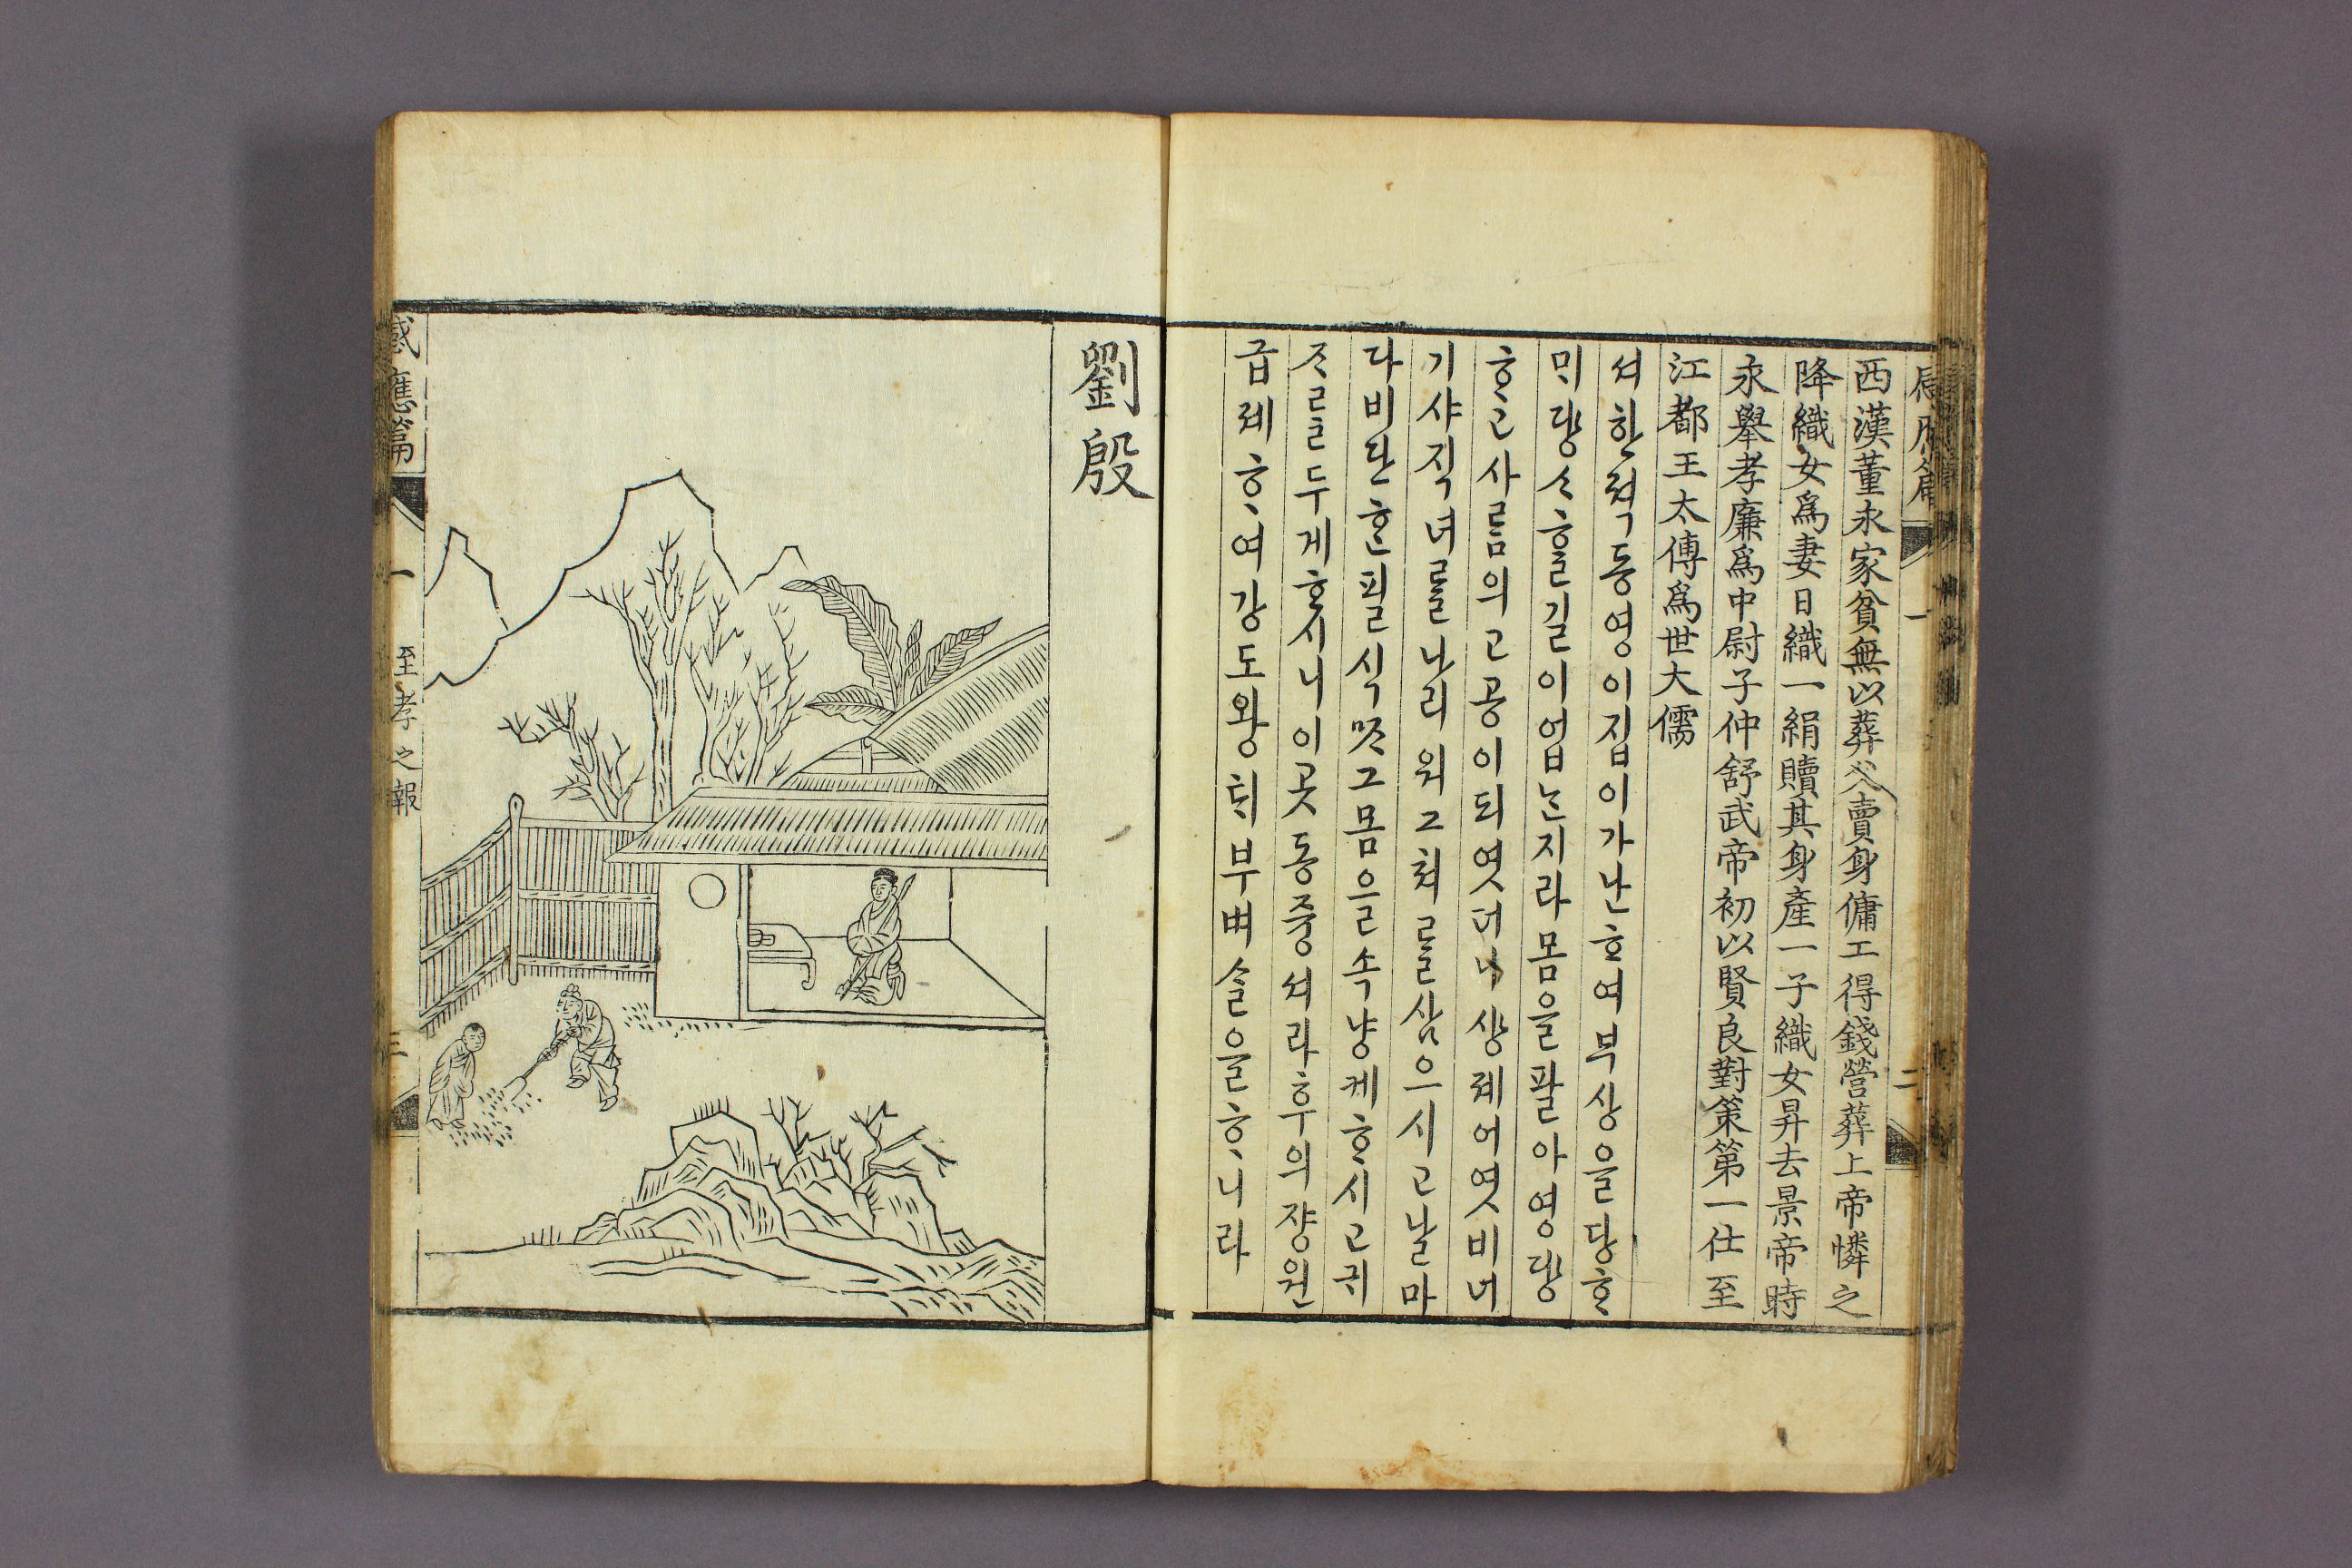 西漢董永家貧無以葬父賣身傭工得錢營葬上帝憐之
降織女爲妻日織一絹贖其身產一子織女昇去景帝時
永擧孝廉爲中尉子仲舒武帝初以賢良對策第一仕至
江都王太傅爲世大儒
셔한젹동영이집이가난ᄒᆞ여부상을당ᄒᆞ
ᄆᆡ댱ᄉᆞᄒᆞᆯ길이업ᄂᆞᆫ지라몸을팔아영댱
ᄒᆞ고사ᄅᆞᆷ의고공이되엿더니샹졔어엿비녀
기샤직녀ᄅᆞᆯ나리워그쳐ᄅᆞᆯ삼으시고날마
다비단ᄒᆞᆫ필식ᄶᆞ그몸을속냥케ᄒᆞ시고귀
ᄌᆞᄅᆞᆯ두게ᄒᆞ시니이곳동즁셔라후의쟝원
급졔ᄒᆞ여강도왕태부벼슬을ᄒᆞ니라
劉殷
感應篇
一
至孝之報
三